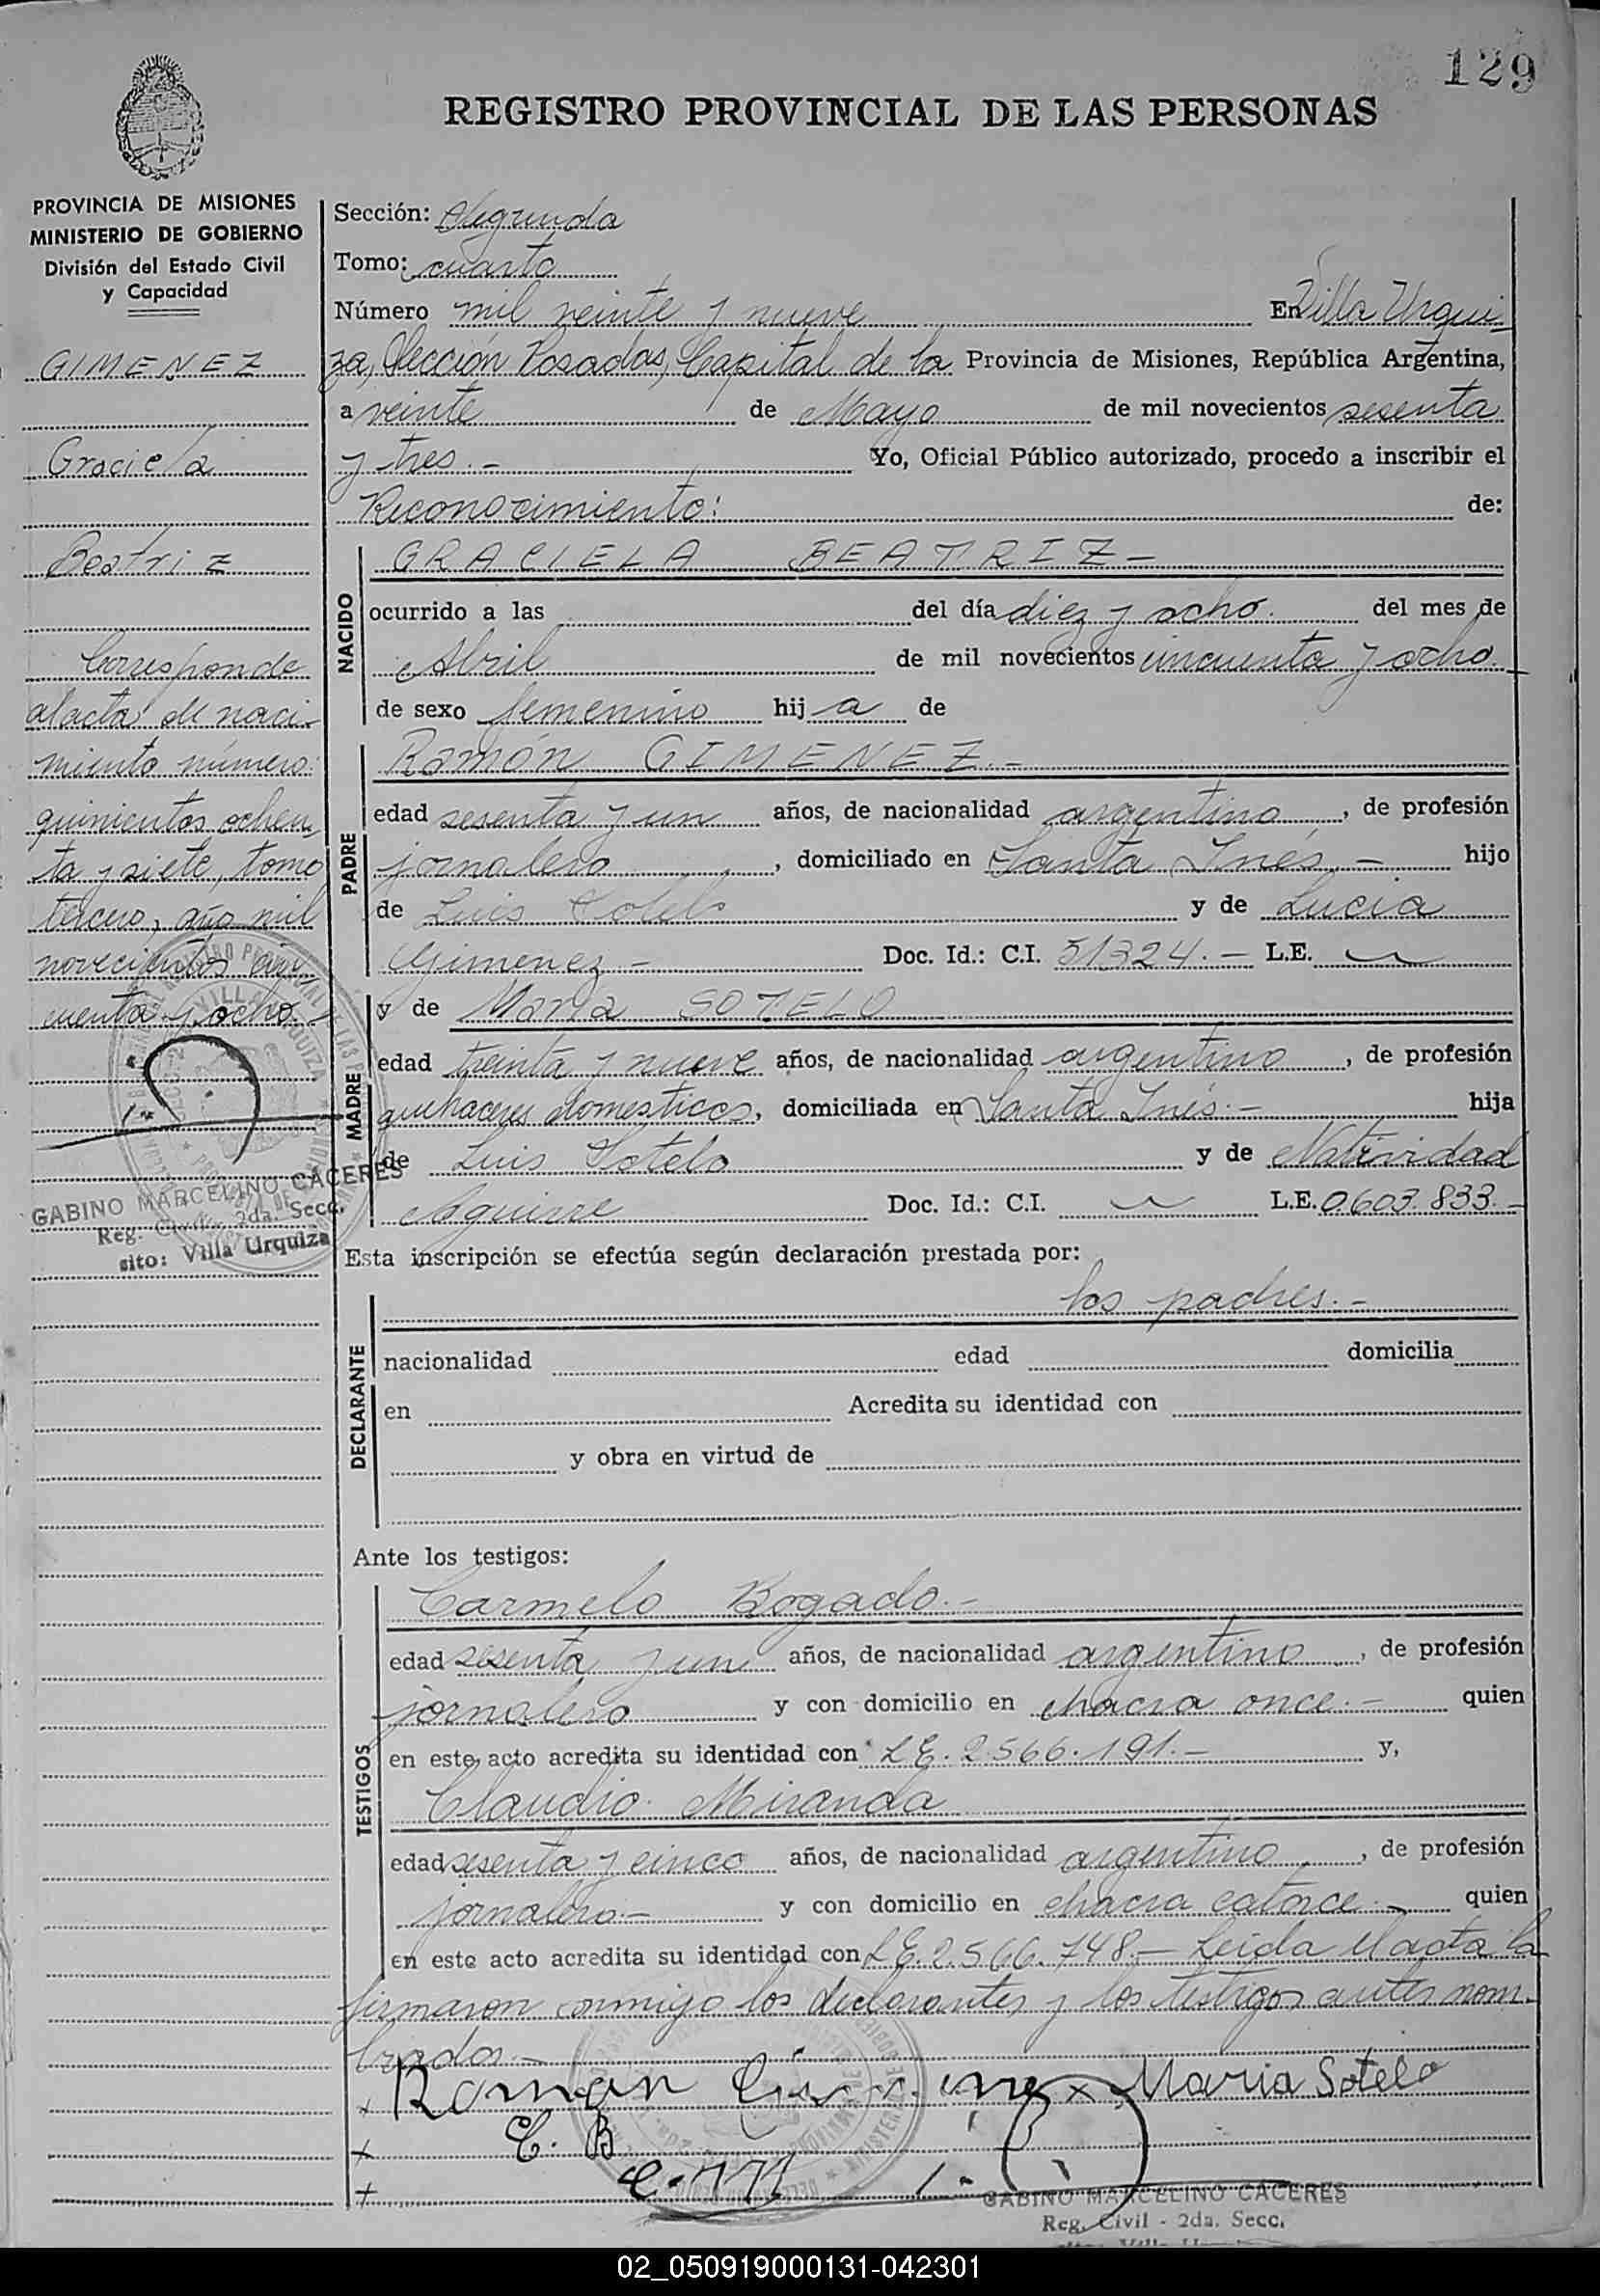 129
REGISTRO PROVINCIAL DE LAS PERSONAS
PROVINCIA DE MISIONES
MINISTERIO DE GOBIERNO
División del Estado Civil
y Capacidad
GIMENEZ
Graciela
Beatriz
Corresponde
al acta de naci-
miento número
quinientos ochen
ta y siete, tomo
tercero, año mil
novecientos cin
cuenta y ocho.-
GABINO MARCELINO CACERES
Reg. Civil 2da. Secc.
sito: Villa Urquiza
Sección: Segunda
Tomo: cuarto
Número mil veinte y nueve En Villa Urqui
za, Sección Posadas, Capital de la Provincia de Misiones, República Argentina,
a veinte de Mayo de mil novecientos sesenta
y tres.- Yo, Oficial Público autorizado, procedo a inscribir el
Reconocimiento: de:
NACIDO
GRACIELA BEATRIZ-
ocurrido a las del día diez y ocho. del mes de
Abril de mil novecientos cincuenta y ocho
de sexo femenino hij a de
PADRE
Ramón GIMENEZ.-
edad sesenta y un años, de nacionalidad argentino, de profesión
jornalero, domiciliado en Santa Inés.- hijo
de Luis Sotelo y de Lucia
Gimenez- Doc. Id.: C.I. 51324.- L.E.
MADRE
y de Maria SOTELO
edad treinta y nueve años, de nacionalidad argentino, de profesión
quehaceres domesticos, domiciliada en Santa Inés.- hija
de Luis Sotelo y de Natividad
Aguirre Doc. Id.: C.I. L.E. 0.603.833.-
Esta inscripción se efectúa según declaración prestada por:
DECLARANTE
los padres.-
nacionalidad edad domicilia
en Acredita su identidad con
y obra en virtud de
Ante los testigos:
TESTIGOS
Carmelo Bogado.-
edad sesenta y un años, de nacionalidad argentino, de profesión
jornalero y con domicilio en chacra once.- quien
en este acto acredita su identidad con L.E. 2.566.191.- y,
Claudio Miranda
edad sesenta y cinco años, de nacionalidad argentino, de profesión
jornalero.- y con domicilio en chacra catorce.- quien
en este acto acredita su identidad con L.E. 2.566.748.- Leida el acta la
firmaron conmigo los declarantes y los testigos antes nom-
brados.-
x Roman x Maria Sotelo
x C. B
x
GABINO MARCELINO CACERES
Reg. Civil - 2da. Secc.
02_050919000131-042301